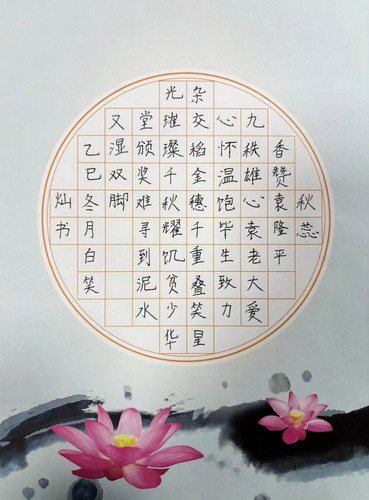 秋蕊
香赞袁隆平
九秩雄心袁老大爱
心怀温饱毕生致力
杂交稻金穗千重叠笑星
光璀璨千秋耀饥贫少华
堂颁奖难寻到泥水
又湿双脚
乙巳冬月白笑
灿书